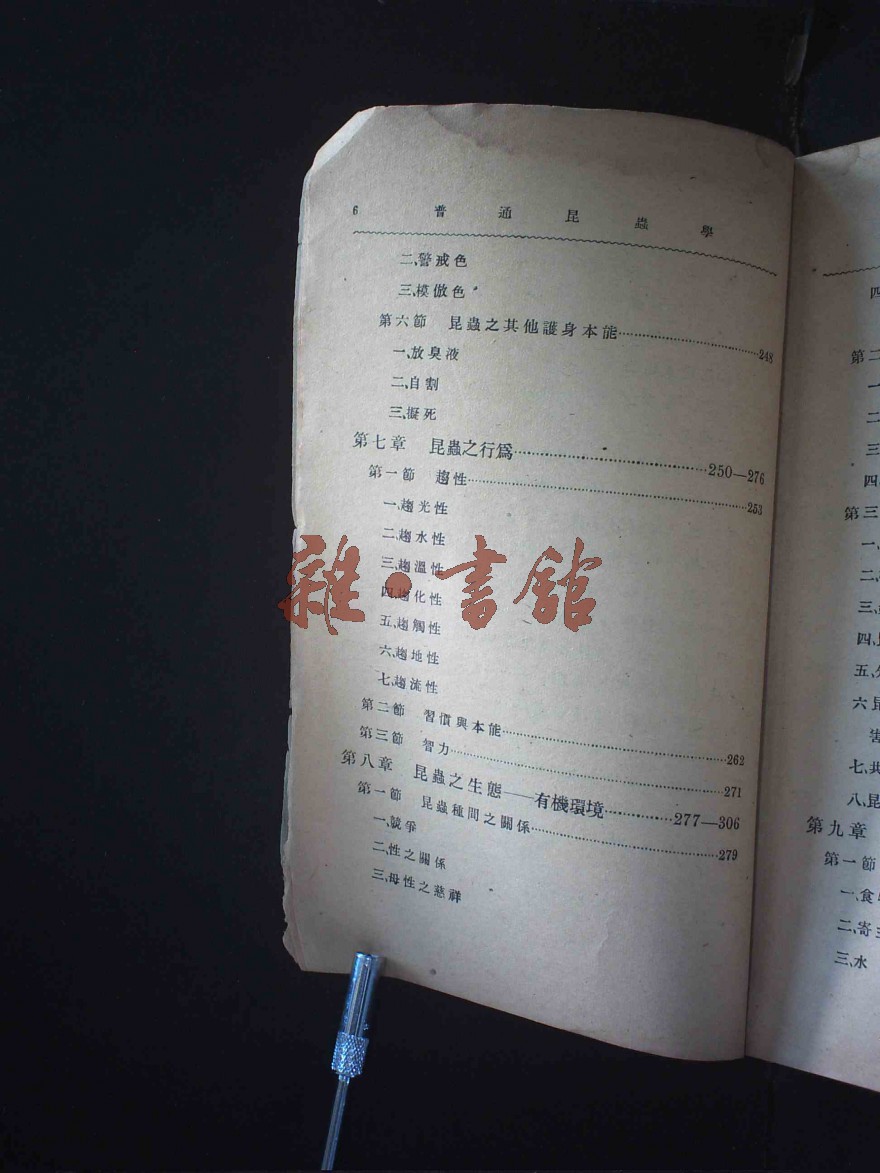 6 普通昆蟲學
二、警戒色
三、模倣色
第六節 昆蟲之其他護身本能……248
一、放臭液
二、自割
三、擬死
第七章 昆蟲之行爲……250—276
第一節 趨性……253
一、趨光性
二、趨水性
三、趨溫性
四、趨化性
五、趨觸性
六、趨地性
七、趨流性
第二節 習慣與本能……262
第三節 智力……271
第八章 昆蟲之生態——有機環境……277—306
第一節 昆蟲種間之關係……279
一、競爭
二、性之關係
三、母性之慈祥
雜·書館
四
第二
一、
二、
三、
四、
第三
一、
二、
三、
四、
五、
六、昆
七、共
八、昆
第九章
第一節
一、食
二、寄
三、水